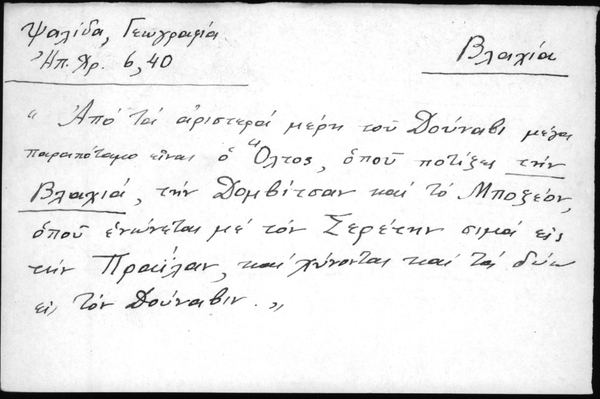 Ψαλίδα, Γεωγραφία
Ἠπ. Χρ. 6, 40
Βλαχία
„ Ἀπό τά ἀριστερά μέρη τοῦ Δούναβι μέγας
παραπόταμο εἶναι ὁ Ὄλτος, ὁποῦ ποτίζει τήν
Βλαχιά, τήν Δομβίτσαν καί τό Μποζέον,
ὁποῦ ἑνώνεται μέ τόν Σερέτην σιμά εἰς
τήν Πραΐλαν, καί χύνονται καί τά δύω
εἰς τόν Δούναβιν. „